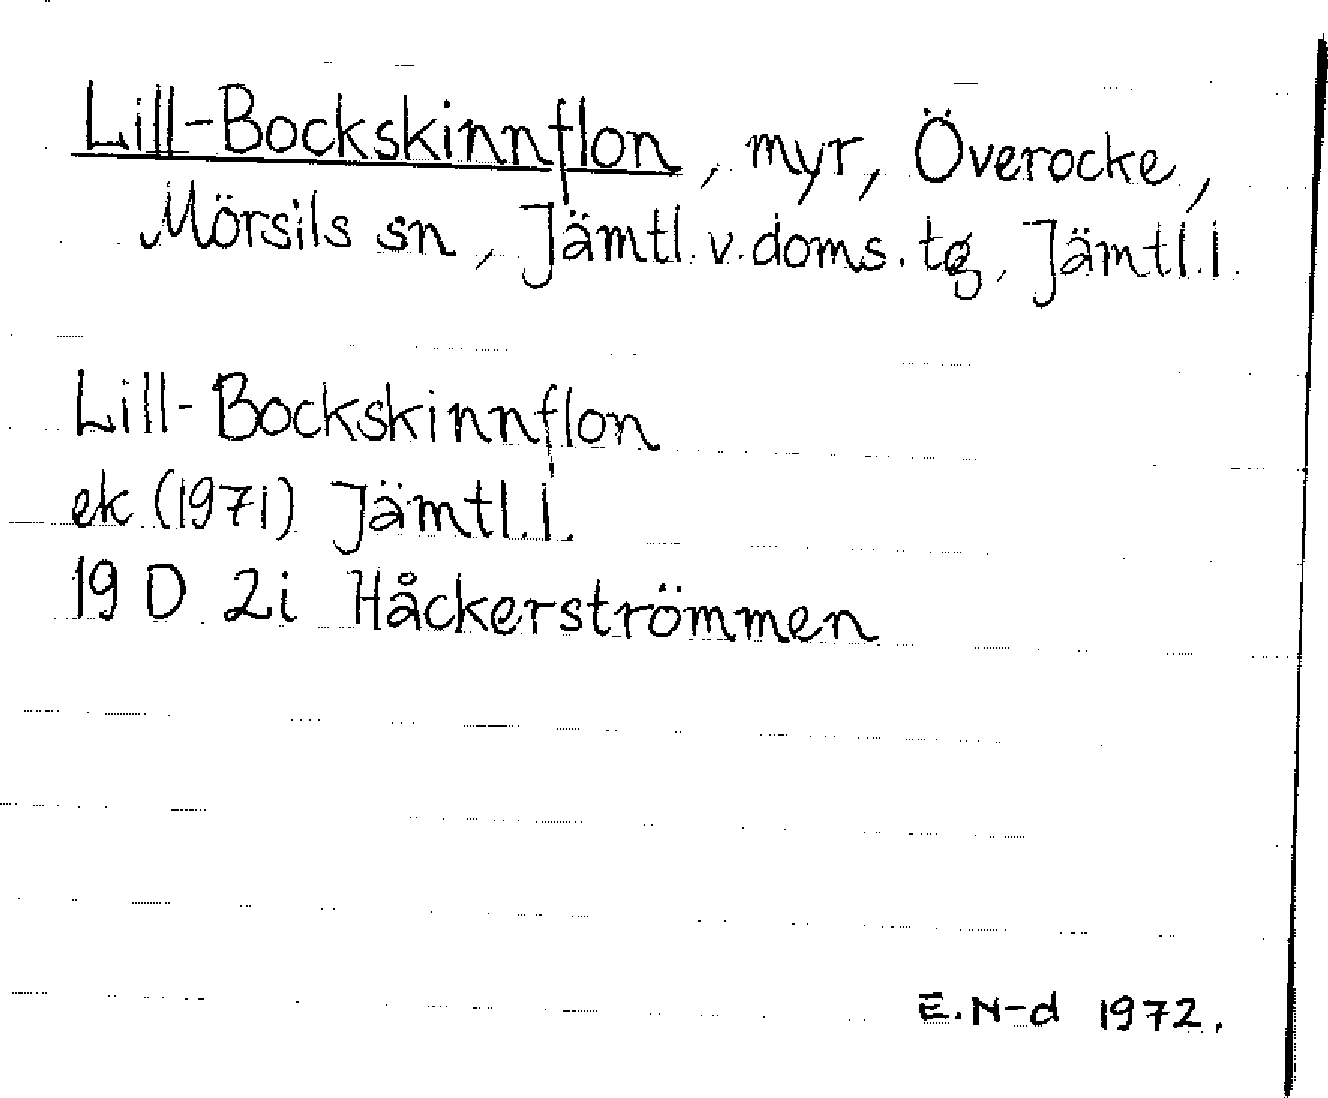 Lill-Bockskinnflon, myr, Överocke,
Mörsils sn, Jämtl. v. doms. tg, Jämtl.l.
Lill-Bockskinnflon
ek (1971) Jämtl.l.
19 D 2i Håckerströmmen
E.N-d 1972.